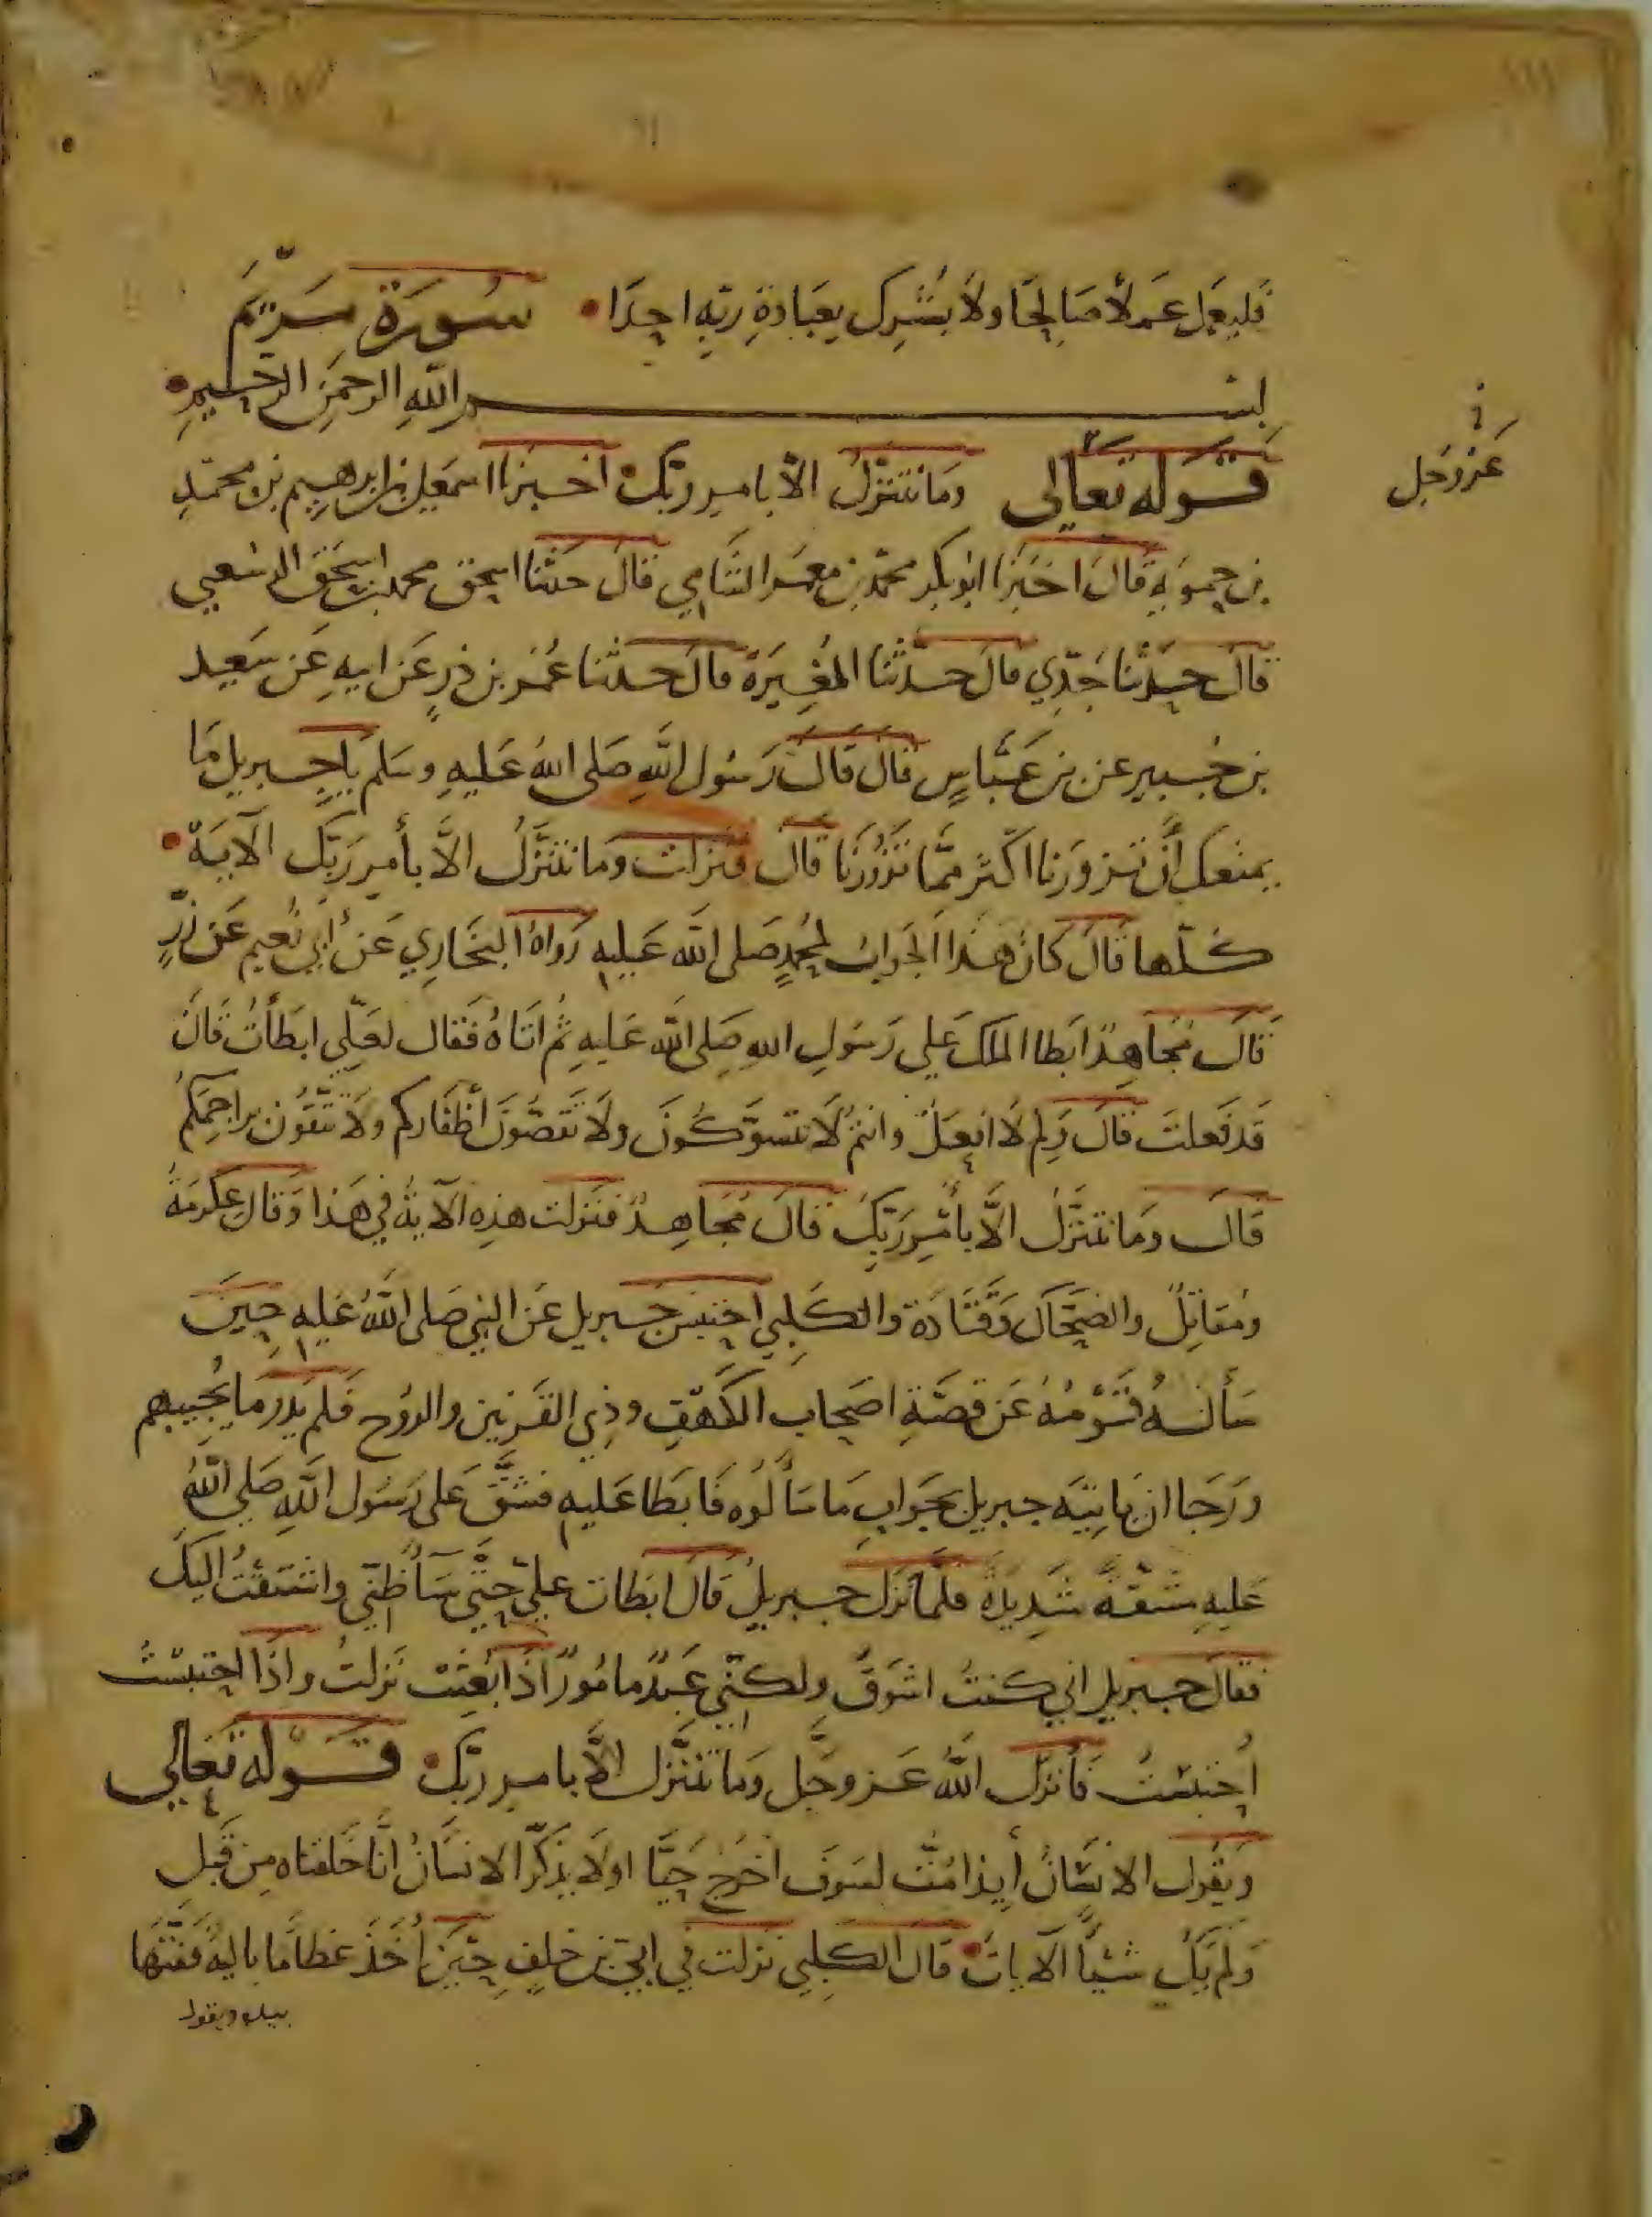 فليعمل عملا صالحا ولا يشرك بعبادة ربه احدا • سورة مريم
بسم الله الرحمن الرحيم •
قوله تعالى وما نتنزل الا بامر ربك • اخبرنا اسمعيل بن ابرهيم بن محمد
ن
عز وجل
بن حمويه قال اخبرنا ابو بكر محمد بن معمر الشامي قال حدثنا اسحق محمد بن اسحق الرسعبي
قال حدثنا جدي قال حدثنا المغيرة قال حدثنا عمر بن ذر عن ابيه عن سعيد
بن جبير عن بن عباس قال قال رسول الله صلى الله عليه وسلم يا جبريل ما
يمنعك أن تزورنا اكثر مما تزورنا قال فنزلت وما نتنزل الا بأمر ربك الآية •
كلها قال كان هذا الجواب لمحمد صلى الله عليه رواه البخاري عن أبي نعيم عن ذر
قال مجاهد ابطا الملك علي رسول الله صلى الله عليه ثم اتاه فقال لعلي ابطأت قال
قد فعلت قال ولم لا افعل وانتم لا تتسوكون ولا تقصون أظفاركم ولا تنقون براجمكم
قال وما نتنزل الا بأمر ربك قال مجاهد فنزلت هذه الآية في هذا وقال عكرمة
ومقاتل والضحاك وقتادة والكلبي احتبس جبريل عن النبي صلى الله عليه حين
سألسه قومه عن قصة اصحاب الكهف وذي القرنين والروح فلم يدر ما يجيبهم
ورجا ان ياتيه جبريل بجواب ما سألوه فابطا عليه فشق على رسول الله صلي الله
عليه مشقة شديدة فلما نزل جبريل قال ابطات علي حتي سآ ظني واشتقت اليك
فقال جبريل اني كنت اشوق ولكني عبد مامور اذا بعثت نزلت واذا احتبست
احتبست فأنزل الله عز وجل وما نتنزل الا بامر ربك • قوله تعالي
ويقول الانسان أيذا مت لسوف اخرج حيا اولا يذكر الانسان انا خلقناه من قبل
ولم يك شيئا الآيات • قال الكلبي نزلت في ابي بن خلف حين أخذ عظاما بالية ففتتها
بيده ويقول